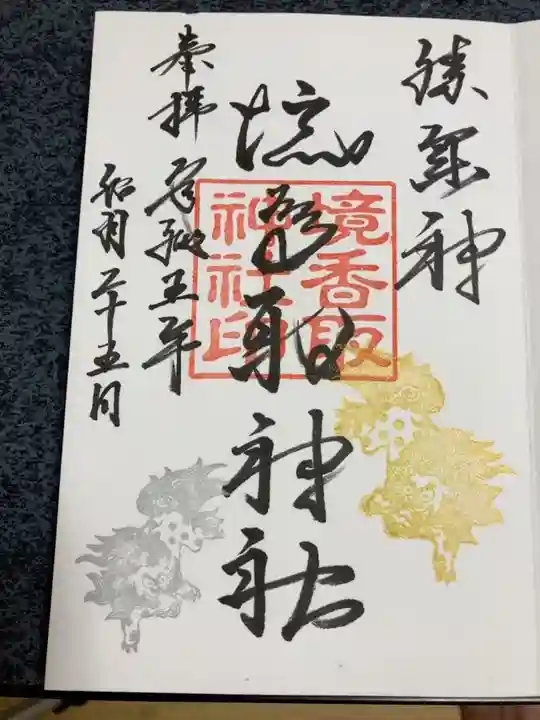 勝軍神
境香取神社
境香取
神社印
奉拝 令和五年
和月二十五日